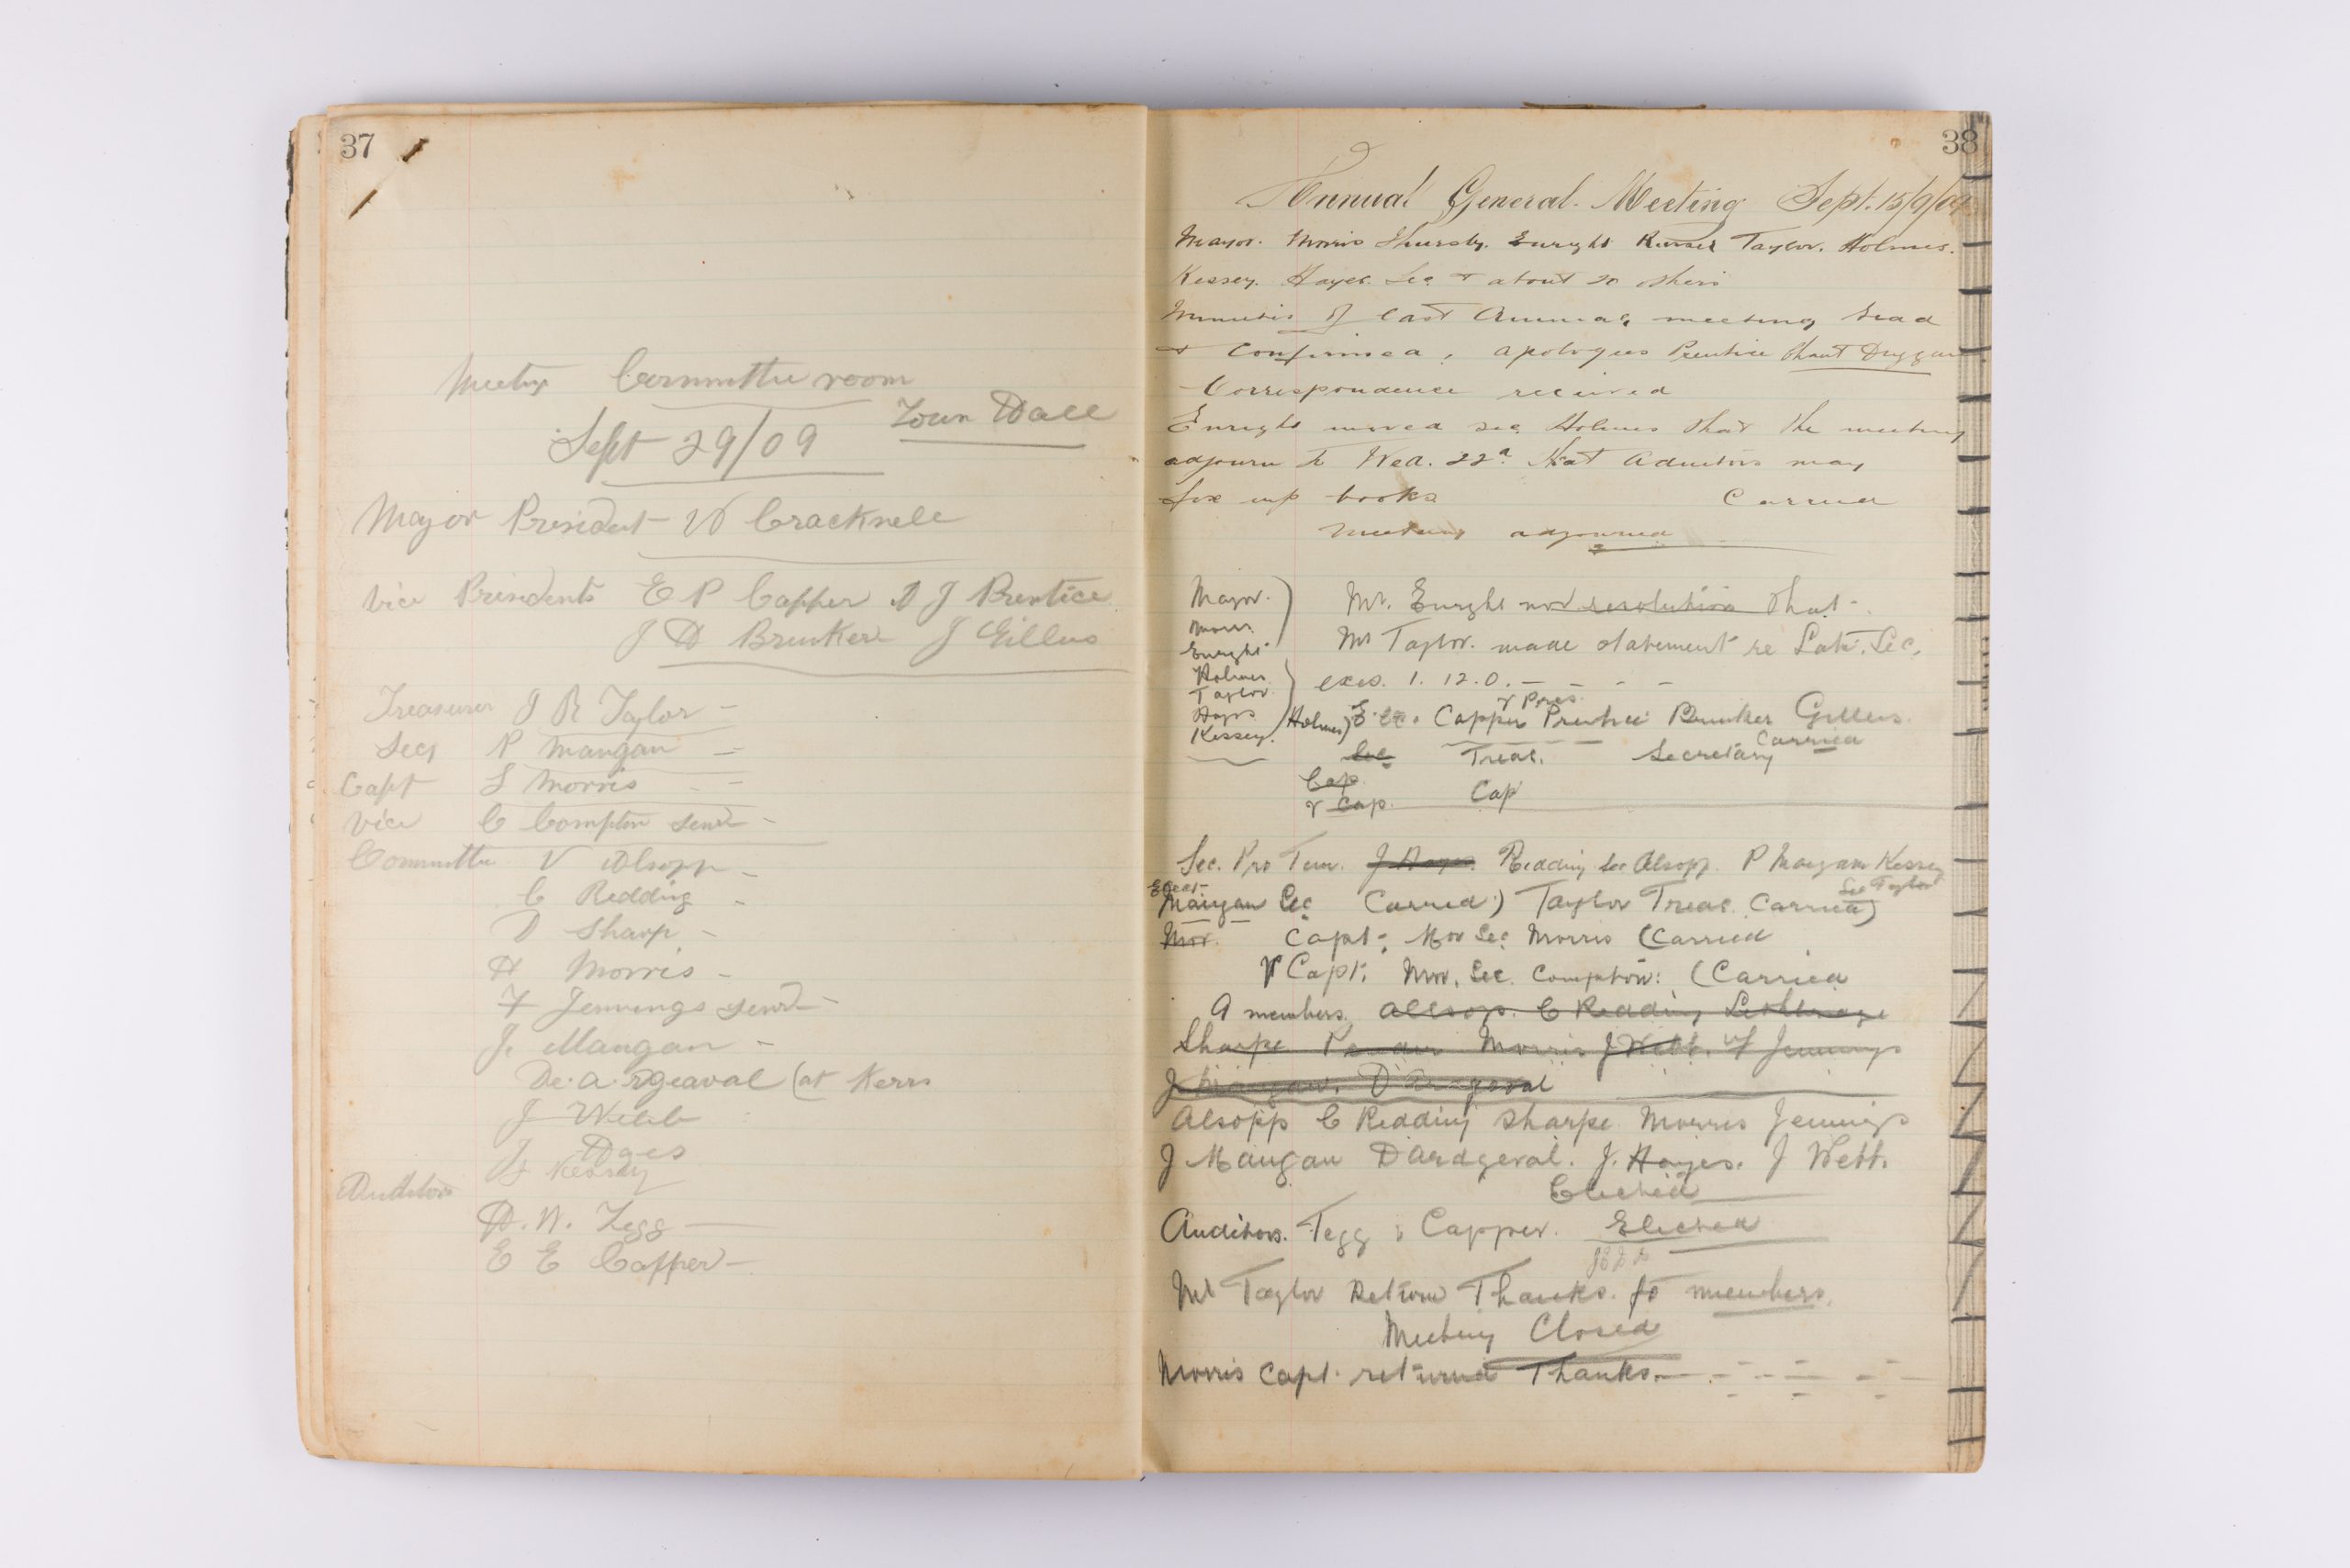 37
Meeting Committee room
Town Hall
Sept 29/09
Mayor President W Cracknell
Vice Presidents E P Capper D J Prentice
J H Brunker J Gillies
Treasurer J R Taylor -
Secy P Mangan -
Capt S Morris - -
Vice C Compton Senr -
Committee V Alsopp -
C Redding -
D Sharp -
H Morris -
F Jennings Senr -
J. Mangan -
De. a. rgeaval (at Kerrs
J Webb
J Hayes
J Kessey
Auditors
H. W. Tegg -
E E Capper -
38
Annual General Meeting Sept. 15/9/09
Mayor. Morris Thursby. Enright Taylor. Holmes.
Kessey. Hayes. Sec + about 20 others
Minutes of last Annual meeting read
+ confirmed, apologies Prentice Duggan
Correspondence received
Enright moved sec. Holmes that the meeting
adjourn to Wed. 22d. that auditors may
fix up books Carried
Meeting adjourned
Mayor. Mr. Enright mov resolution that -
Morris
Enright Mr Taylor. made statement re Late. Sec.
Holmes exes. 1. 12. 0. - - - -
Taylor v Pres.
Hayes Holmes) Capper Prentice Brunker Gillies.
Kessey. Carried
Sec Treas. Secretary
Cap.
v Cap. Cap
Sec. Pro Tem. J Hayes. Redding sec Alsopp. P Mangan Kessey
Elect- Sec Taylor
Mangan Sec Carried) Taylor Treas. Carried)
Mov. Capt. Mov Sec Morris (Carried
V Capt. Mov. Sec. Compton: (Carried
9 members. Allsop. C Redding
Sharpe Morris J Webb. Jennings
J Mangan. D'Ardgeval
Alsopp C Redding Sharpe Morris Jennings
J Mangan Dardgeval. J. Hayes. J Webb.
Elected
Auditors. Tegg & Capper. Elected
Mr Taylor Return Thanks. to members.
Meeting Closed
Morris Capt. returned Thanks.